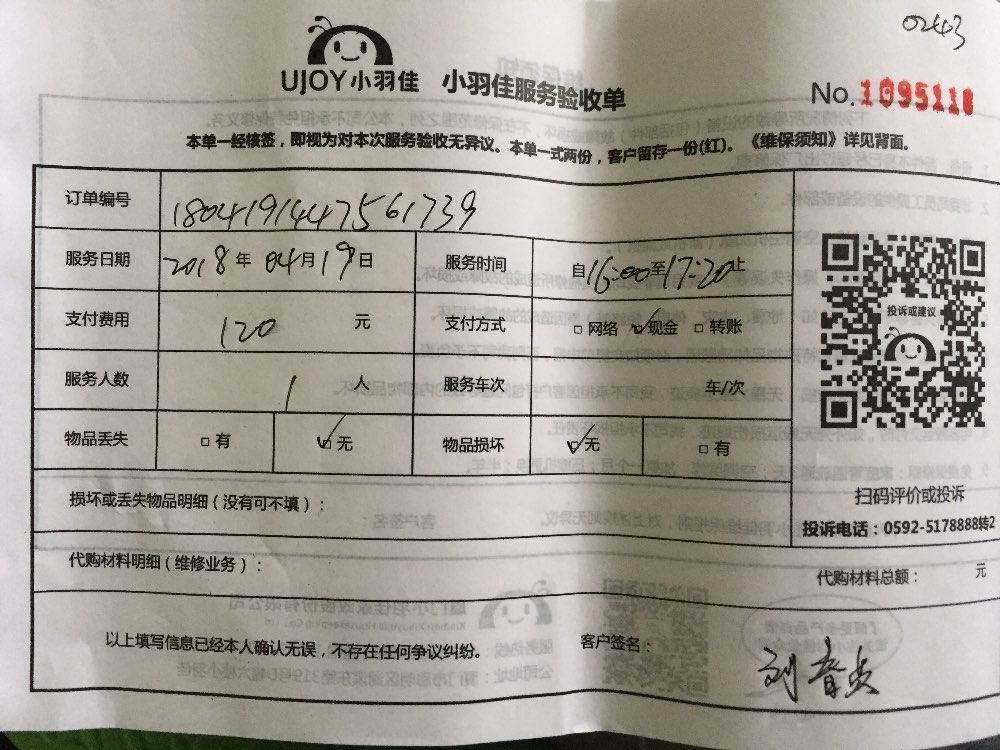 0243
UJOY小羽佳 小羽佳服务验收单
No.1095110
本单一经核签，即视为对本次服务验收无异议。本单一式两份，客户留存一份(红)。《维保须知》详见背面。
订单编号 180419144756 1739
服务日期 2018年 04月19日 服务时间 自16:00至17:20止
支付费用 120 元 支付方式 □网络 ☑现金 □转账
服务人数 1 人 服务车次 车/次
物品丢失 □有 ☑无 物品损坏 ☑无 □有
投诉或建议
扫码评价或投诉
投诉电话：0592-5178888转2
损坏或丢失物品明细（没有可不填）：
代购材料明细（维修业务）： 代购材料总额： 元
以上填写信息已经本人确认无误，不存在任何争议纠纷。 客户签名：